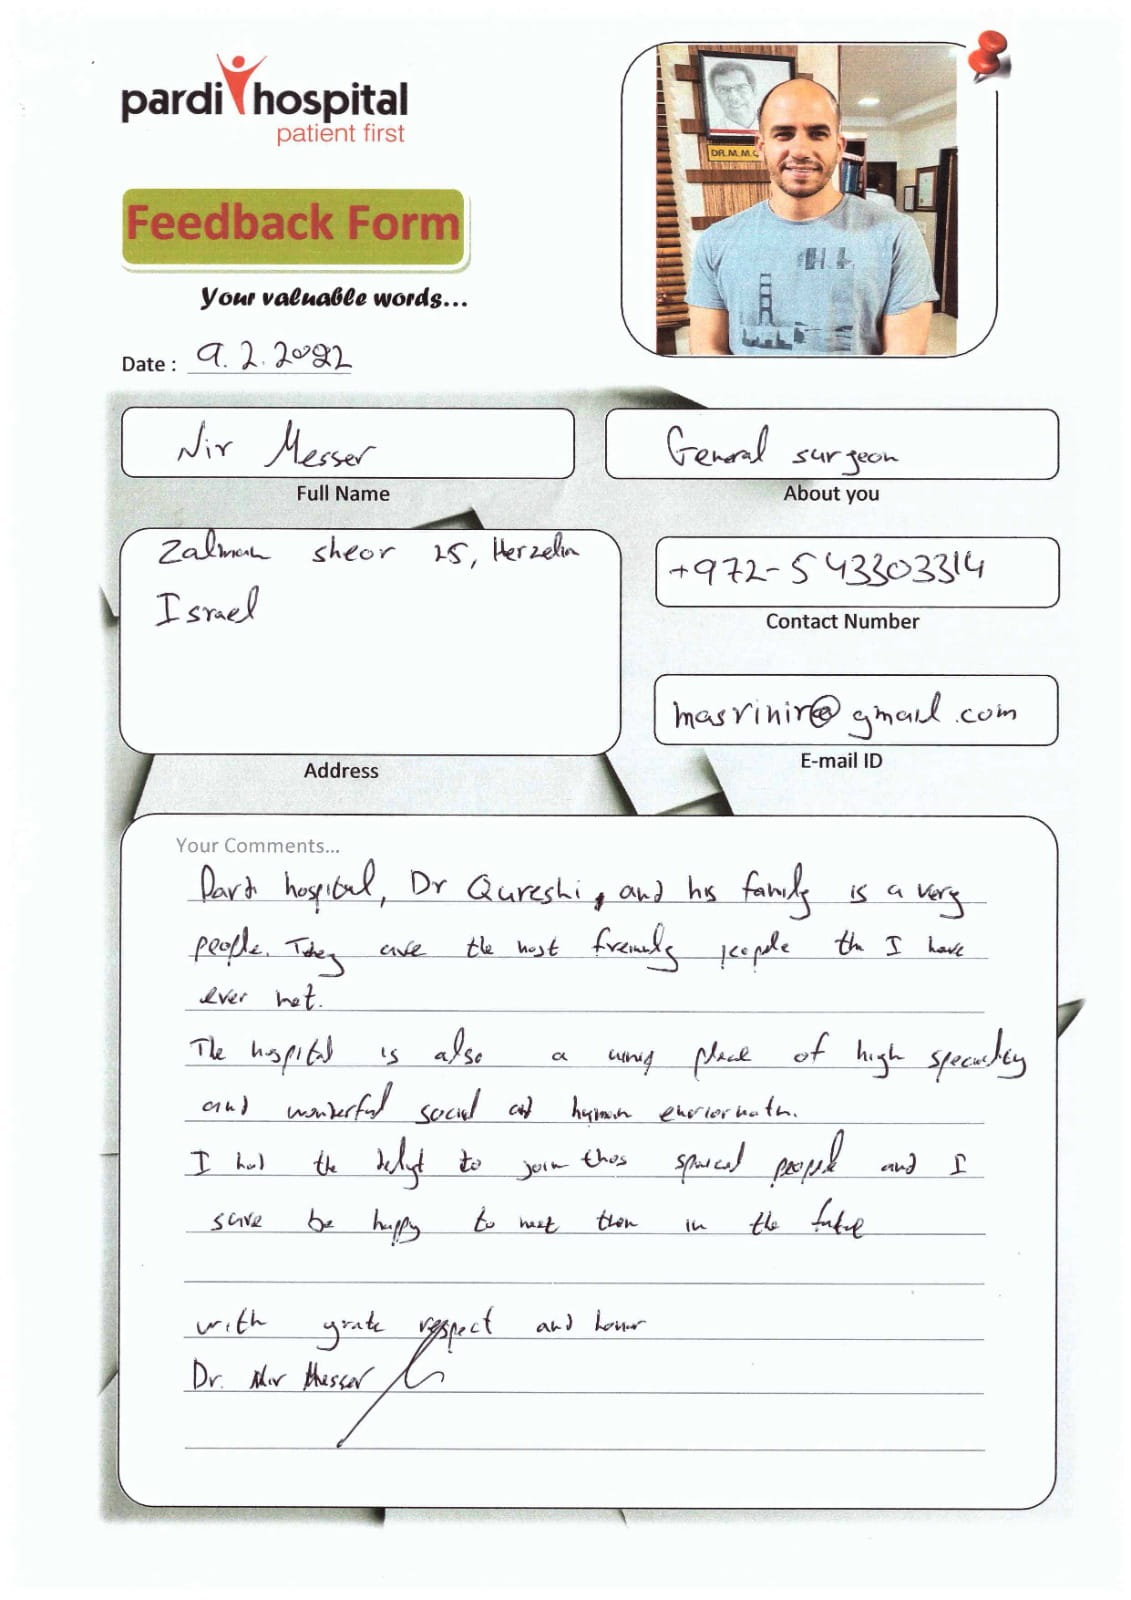 pardi hospital
patient first
DR.M.M.
Feedback Form
Your valuable words...
Date : 9.2.2022
Nir Messer
Full Name
General surgeon
About you
Zalman sheor 25, Herzelia
Israel
Address
+972-543303314
Contact Number
masrinir@gmail.com
E-mail ID
Your Comments...
Pardi hospital, Dr Qureshi, and his family is a very
people. They are the most friendly people I have
ever met.
The hospital is also a place of high
and wonderful social and human
I had the to join people and I
be happy to meet them in the
with grate respect and honor
Dr. Nir Messer